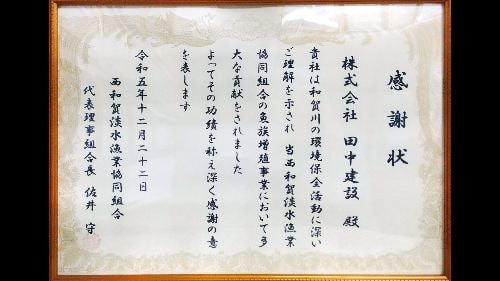 感謝状
株式会社 田中建設 殿
貴社は和賀川の環境保全活動に深い
ご理解を示され 当西和賀淡水漁業
協同組合の魚族増殖事業において多
大な貢献をされました
よってその功績を称え深く感謝の意
を表します
令和五年十二月二十二日
西和賀淡水漁業協同組合
代表理事組合長 佐井 守